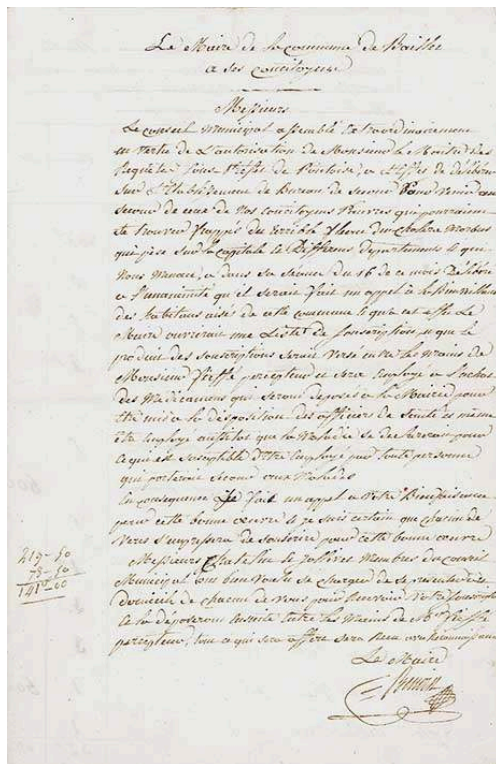 Le Maire de la Commune de Baillet
a ses concitoyens
Messieurs
Le conseil municipal assemblé Extraordinairement
en vertu de L'autorisation de Monsieur le Maitre des
Requête Sous Prefet de Pontoise, a L'Effet de délibérer
Sur L'Etablissement de Bureau de Secour Pour venir au
Secour de ceux de Nos concitoyens Pauvres qui pourraient
se trouver frappés du terrible fleau du Cholera Morbus
qui pèse Sur la Capitale et Differens departements et qui
Nous Menace, a dans sa Seance du 16 de ce mois Délibéré
a l'unanimité qu'il serait fait un appel a la Bienveillance
des habitans aisés de cette commune et qu'a cet effet Le
Maire ouvrirait une Liste de Souscription et que le
produit des Souscriptions Serait versé entre les mains de
Monsieur percepteur et sera Employé a L'achat
des Médicamens qui seront deposés a la Mairie pour
être mis a la disposition des officiers de Santé et même
être Employé aussitot que la Maladie se declarerait pour
ce qui est susceptible d'être Employé par toute personne
qui porterait secour aux Malades
En consequence Je fait un appel a votre Bienfaisance
pour cette bonne œuvre et je suis certain que chacun de
vous s'empressera de Souscrire pour cette bonne œuvre
Messieurs et Membres du Conseil
Municipal ont bien voulu se charger de se presenter au
domicile de chacun de vous pour Recevoir votre Souscription
et la deposeront Ensuite Entre les Mains de Mr
percepteur, tout ce qui sera offert sera Recu avec Reconnaissance
Le Maire
219-50
78-50
141-00